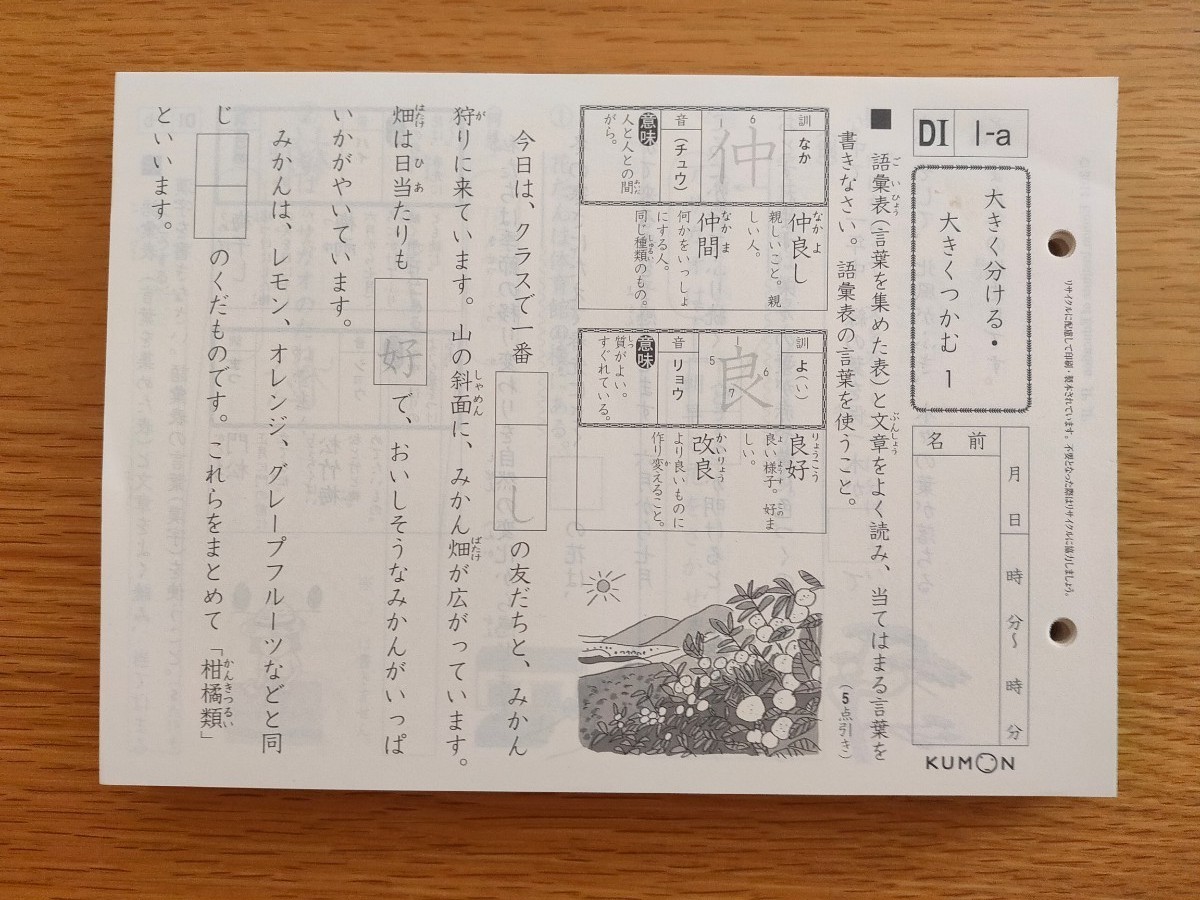 DI 1-a
大きく分ける・
大きくつかむ 1
名前
月 日 時 分〜 時 分
KUMON
リサイクルに配慮して印刷・製本されています。不要となった際はリサイクルに協力しましょう。
■ 語彙表(言葉を集めた表)と文章をよく読み、当てはまる言葉を
ごいひょう
ぶんしょう
書きなさい。語彙表の言葉を使うこと。
(5点引き)
訓 なか
音 (チュウ)
仲
1
6
意味
人と人との間
あいだ
がら。
仲良し
なかよ
親しいこと。親
しい人。
仲間
なかま
何かをいっしょ
にする人。
同じ種類のもの。
しゅるい
訓 よ(い)
音 リョウ
良
1
5
6
7
意味
質がよい。
しつ
すぐれている。
良好
りょうこう
良い様子。好ま
ようす
この
しい。
改良
かいりょう
より良いものに
作り変えること。
か
今日は、クラスで一番 □□し の友だちと、みかん
狩りに来ています。山の斜面に、みかん畑が広がっています。
が
しゃめん
ばたけ
畑は日当たりも □好 で、おいしそうなみかんがいっぱ
はたけ
ひあ
いかがやいています。
みかんは、レモン、オレンジ、グレープフルーツなどと同
じ □□ のくだものです。これらをまとめて「柑橘類」
かんきつるい
といいます。